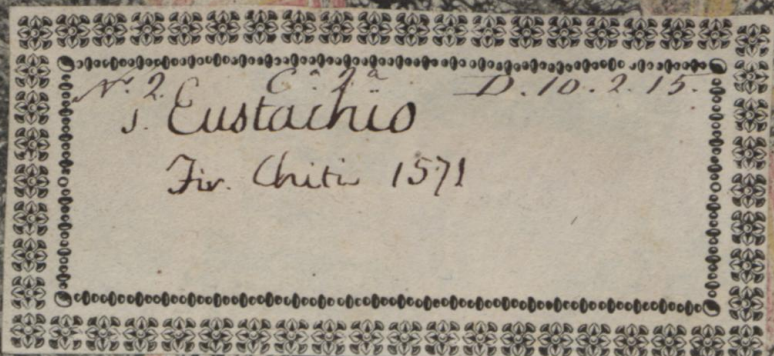 No. 2. Ca. 2a D. 10. 2. 15.
S. Eustachio
Fir. Chiti 1571